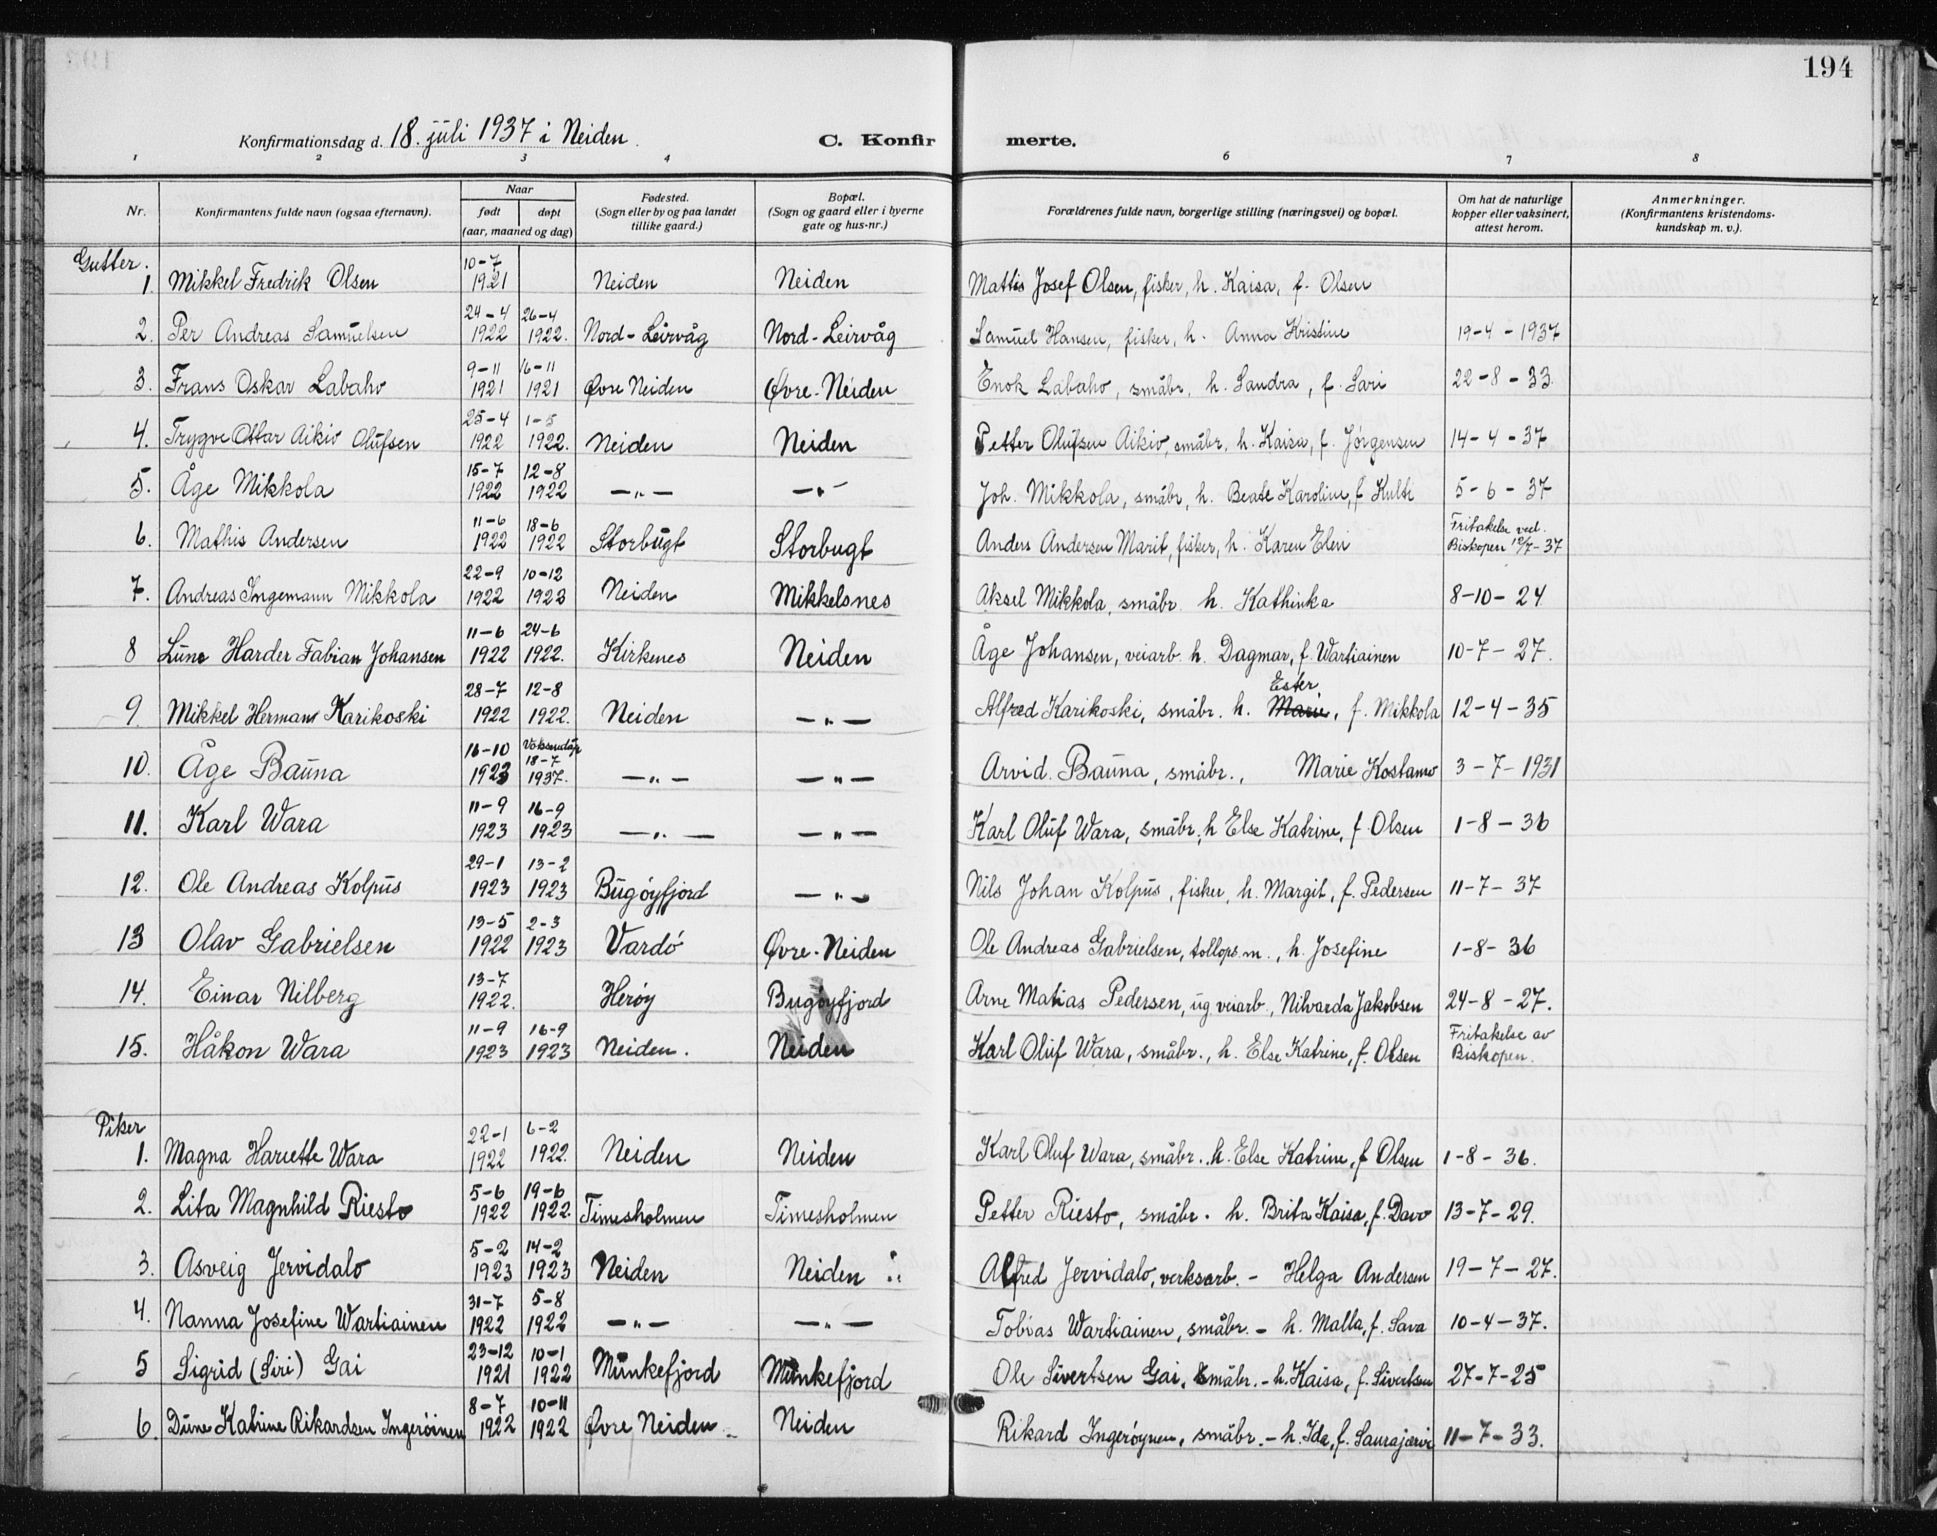 194
Konfirmationsdag d. 18. juli 1937 i Neiden.
C. Konfirmerte.
1 2 3 4 5 6 7 8
Nr. | Konfirmantens fulde navn (ogsaa efternavn). | Naar født døpt (aar, maaned og dag) | Fødested. (Sogn eller by og paa landet tillike gaard.) | Bopæl. (Sogn og gaard eller i byerne gate og hus-nr.) | Forældrenes fulde navn, borgerlige stilling (næringsvei) og bopæl. | Om hat de naturlige kopper eller vaksinert, attest herom. | Anmerkninger. (Konfirmantens kristendomskundskap m. v.).
Gutter.
1. Mikkel Fredrik Olsen | 10-7 1921 | | Neiden | Neiden | Mattis Josef Olsen, fisker, h. Kaisa, f. Olsen
2. Per Andreas Samuelsen | 24-4 1922 | 26-4 1922. | Nord-Leirvåg | Nord-Leirvåg | Samuel Hansen, fisker, h. Anna Kristine | 19-4-1937
3. Frans Oskar Labaho | 9-11 1921 | 16-11 1921 | Øvre Neiden | Øvre-Neiden | Enok Labaho, småbr. h. Sandra, f. Sari | 22-8-33.
4. Trygve Ottar Aikio Olufsen | 25-4 1922 | 1-5 1922. | Neiden | Neiden | Petter Olufsen Aikio, småbr, h. Kaisa, f. Jørgensen | 14-4-37
5. Åge Mikkola | 15-7 1922 | 12-8 1922 | —„— | —„— | Joh. Mikkola, småbr, h. Beate Karoline, f. Kulti | 5-6-37
6. Mathis Andersen | 11-6 1922 | 18-6 1922 | Storbugt | Storbugt | Anders Andersen Marit, fisker, h. Karen Elen | Fritakelse ved. Biskopen 12/7-37
7. Andreas Ingemann Mikkola | 22-9 1922 | 10-12 1923 | Neiden | Mikkelsnes | Aksel Mikkola, småbr. h. Kathinka | 8-10-24
8 Harder Fabian Johansen | 11-6 1922 | 24-6 1922. | Kirkenes | Neiden | Åge Johansen, veiarb. h. Dagmar, f. Wartiainen | 10-7-27.
9. Mikkel Hermans Karikoski | 28-7 1922 | 12-8 1922. | Neiden | —„— | Alfred Karikoski, småbr. h. Marie Ester, f. Mikkola | 12-4-35
10. Åge Bauna | 16-10 1923 | Voksendåp 18-7 1937. | —„— | —„— | Arvid Bauna, småbr., Marie Kostamo | 3-7-1931
11. Karl Wara | 11-9 1923 | 16-9 1923 | —„— | —„— | Karl Oluf Wara, småbr, h Else Katrine, f. Olsen | 1-8-36
12. Ole Andreas Kolpus | 29-1 1923 | 13-2 1923 | Bugøyfjord | —„— | Nils Johan Kolpus, fisker, h. Margit, f. Pedersen | 11-7-37
13 Olav Gabrielsen | 13-5 1922 | 2-3 1923 | Vardö | Øvre-Neiden | Ole Andreas Gabrielsen, tollops.m., h. Josefine | 1-8-36
14. Einar Nilberg | 13-7 1922. | | Herøy | Bugøyfjord | Arne Matias Pedersen, ug veiarb., Nilvarda Jakobsen | 24-8-27.
15. Håkon Wara | 11-9 1923 | 16-9 1923 | Neiden. | Neiden | Karl Oluf Wara, småbr., h. Else Katrine, f. Olsen | Fritakelse av Biskopen.
Piker
1. Magna Hariette Wara | 22-1 1922 | 6-2 1922. | Neiden | Neiden | Karl Oluf Wara, småbr. h. Else Katrine, f Olsen | 1-8-36.
2. Lita Magnhild Riesto | 5-6 1922 | 19-6 1922. | Timesholmen | Timesholmen | Petter Riesto, småbr. h. Brita Kaisa, f. Davo | 13-7-29.
3. Asveig Jervidalo | 5-2 1923 | 14-2 1923 | Neiden | Neiden | Alfred Jervidalo, verksarb. - Helga Andersen | 19-7-27.
4. Nanna Josefine Wartiainen | 31-7 1922 | 5-8 1922 | —„— | —„— | Tobias Wartiainen, småbr. - h. Malla, f. Sava | 10-4-37.
5 Sigrid (Siri) Gai | 23-12 1921 | 10-1 1922 | Munkefjord | Munkefjord | Ole Sivertsen Gai, småbr. - h. Kaisa, f. Sivertsen | 27-7-25
6. Katrine Rikardsen Ingeröinen | 8-7 1922 | 10-11 1922 | Øvre Neiden | Neiden | Rikard Ingerøynen, småbr. - h. Ida, f. Saurajærvi | 11-7-33.